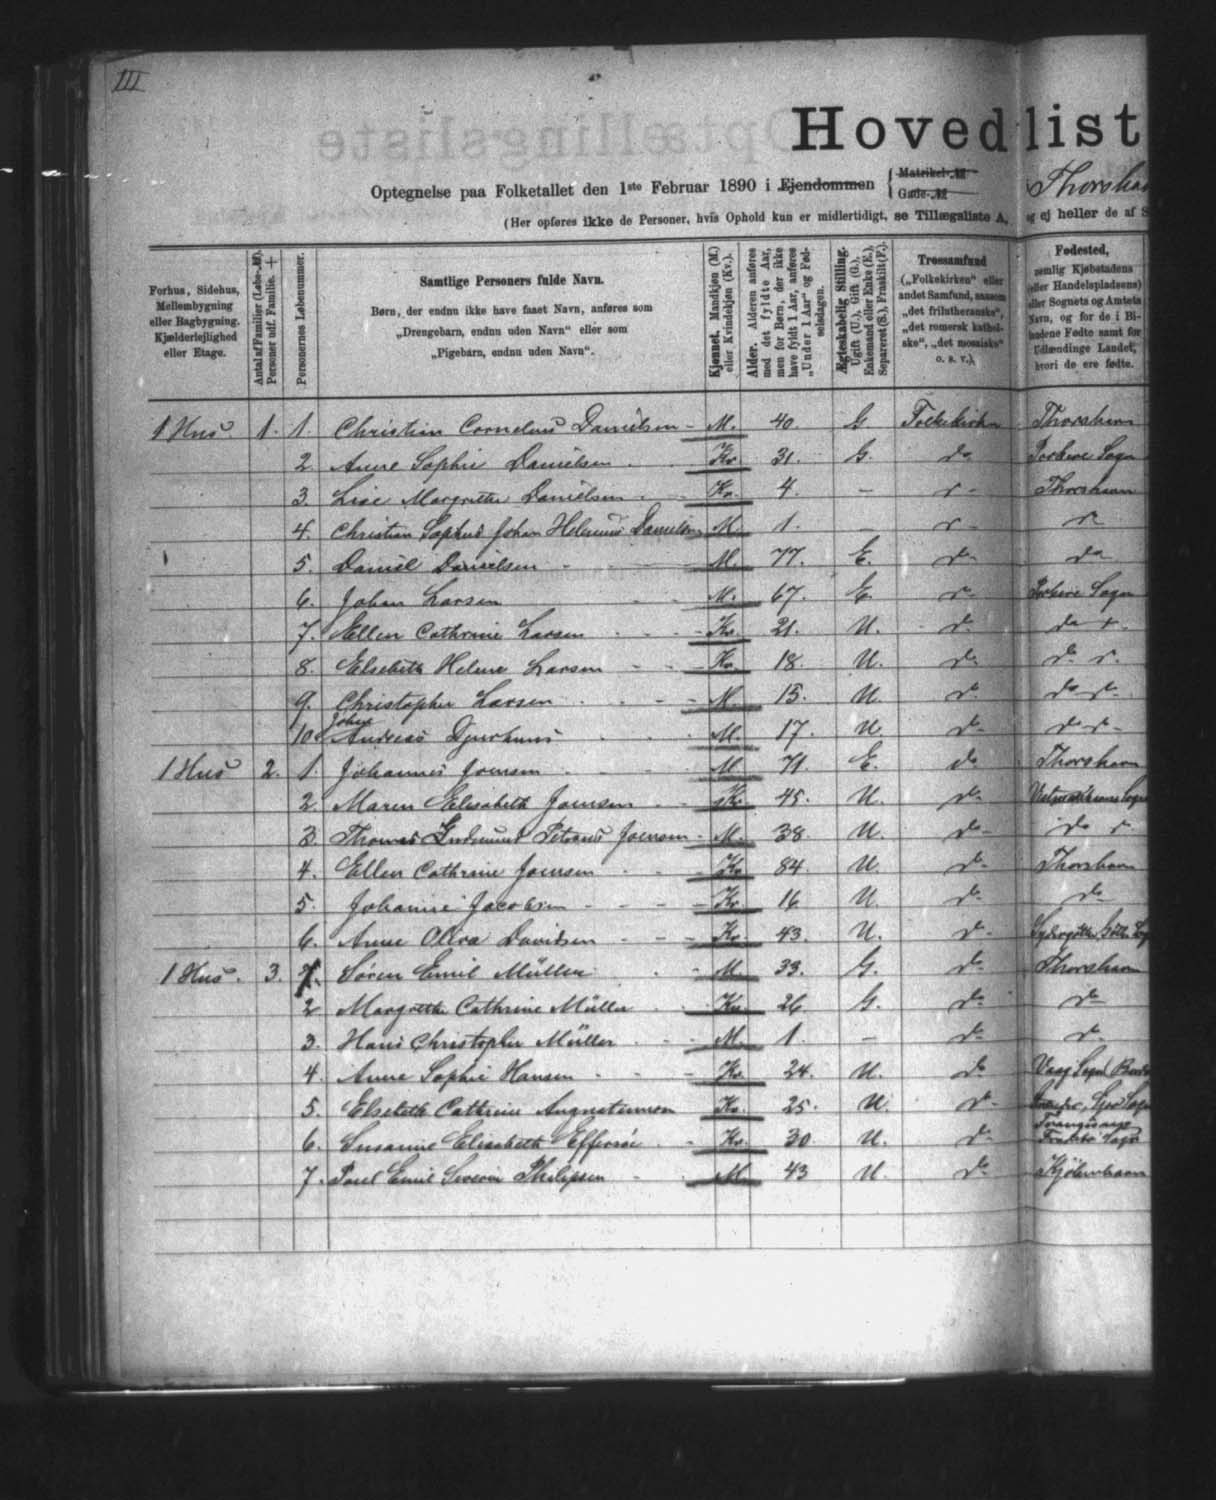 III
Hovedlist
Optegnelse paa Folketallet den 1ste Februar 1890 i Ejendommen { Matrikel-№ Gade-№ Thorshav
(Her opføres ikke de Personer, hvis Ophold kun er midlertidigt, se Tillægsliste A, og ej heller de af S
Forhus, Sidehus, Mellembygning eller Bagbygning. Kjælderlejlighed eller Etage.
Antal af Familier (Løbe-№). Personer udf. Familie. +
Personernes Løbenummer.
Samtlige Personers fulde Navn.
Børn, der endnu ikke have faaet Navn, anføres som
„Drengebarn, endnu uden Navn“ eller som
„Pigebarn, endnu uden Navn“.
Kjønnet. Mandkjøn (M.) eller Kvindekjøn (Kv.).
Alder. Alderen anføres med det fyldte Aar, men for Børn, der ikke have fyldt 1 Aar, anføres „Under 1 Aar“ og Fødselsdagen.
Ægteskabelig Stilling. Ugift (U.), Gift (G.), Enkemand eller Enke (E.), Separeret (S.), Fraskilt (F.).
Trossamfund („Folkekirken“ eller andet Samfund, saasom „det frilutheranske“, „det romersk katholske“, „det mosaiske“ o. s. v.).
Fødested, nemlig Kjøbstadens (eller Handelspladsens) eller Sognets og Amtets Navn, og for de i Bilandene Fødte samt for Udlændinge Landet, hvori de ere fødte.
1 Hus. 1. 1. Christian Cornelius Danielsen - M. 40. G. Folkekirken Thorshavn
2. Anne Sophie Danielsen Kv. 31. G. do Porkere Sogn
3. Lise Margrethe Danielsen Kv. 4. - Thorshavn
4. Christian Sophus Johan Danielsen M. 1. -
5. Daniel Danielsen M. 77. E. do do
6. Johan Larsen M. 67. E. Porkere Sogn
7. Ellen Cathrine Larsen Kv. 21. U. do do
8. Elsebeth Helene Larsen Kv. 18. U. do do
9. Christopher Larsen M. 15. U. do do
10. Johan Andreas Djurhuus M. 17. U. do do
1 Hus 2. 1. Johannes Joensen M. 71. E. do Thorshavn
2. Maren Elisabeth Joensen Kv. 45. U. do
3. Thomas Petersen Joensen M. 38. U. do do
4. Ellen Cathrine Joensen Kv. 84. U. do Thorshavn
5. Johanne Jacobsen Kv. 16 U. do do
6. Anne Davidsen Kv. 43. U. do
1 Hus. 3. 1. Søren Emil Müller M. 33. G. do Thorshavn
2 Margrethe Cathrine Müller Kv. 26 G. do do
3. Hans Christopher Müller M. 1. - do do
4. Anne Sophie Hansen Kv. 24. U. do Vaag Sogn
5. Elsebeth Cathrine Augustinussen Kv. 25. U. do
6. Susanne Elisabeth Effersøe Kv. 30. U. do
7. Poul Emil Severin Philipsen M. 43 U. do Kjöbenhavn